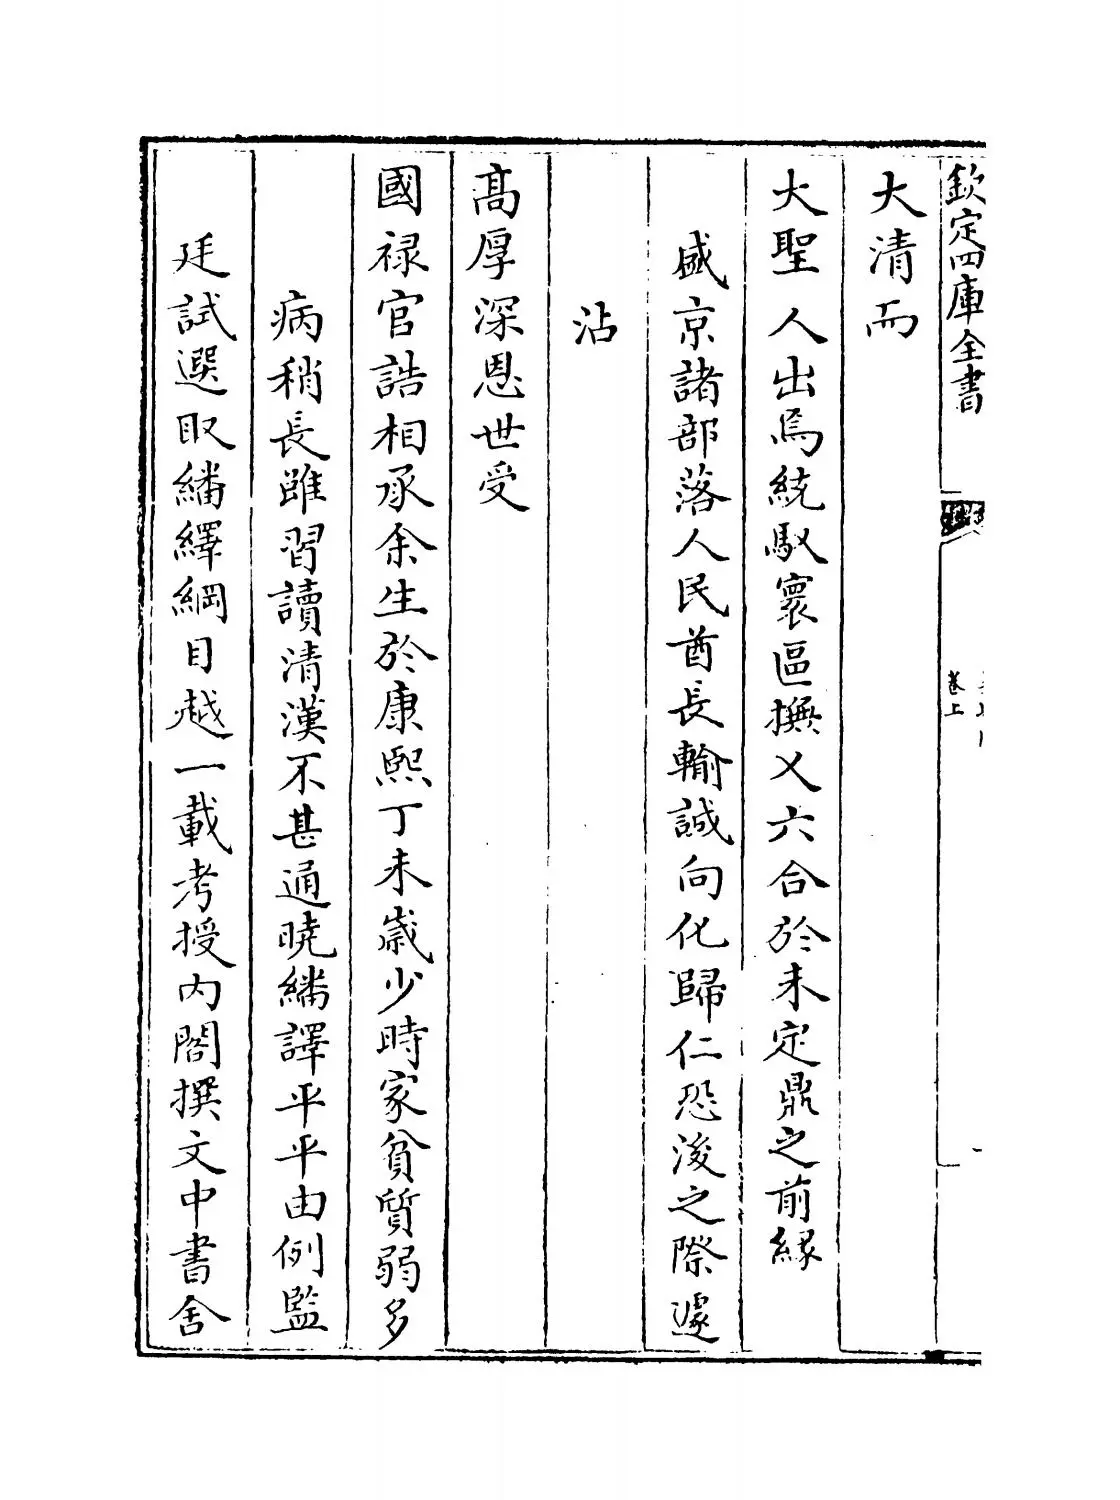 欽定四庫全書
卷上
大清而
大聖人出焉統馭寰區撫乂六合於未定鼎之前緣
盛京諸部落人民酋長輸誠向化歸仁恐後之際遽
沾
高厚深恩世受
國禄官誥相承余生於康熙丁未歲少時家貧質弱多
病稍長雖習讀清漢不甚通曉繙譯平平由例監
廷試選取繙繹綱目越一載考授內閣撰文中書舍